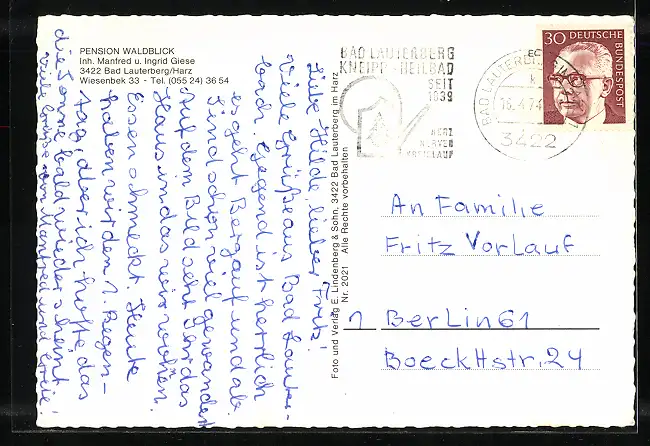 PENSION WALDBLICK
Inh. Manfred u. Ingrid Giese
3422 Bad Lauterberg/Harz
Wiesenbek 33 - Tel. (055 24) 36 54
Liebe Hilde, lieber Fritz!
Viele Grüße aus Bad Lauter-
bach. Gegend ist herrlich
es geht Bergauf und ab
sind schon viel gewandert
Auf dem Bild seht Ihr das
Haus in das wir wohnen.
Essen schmeckt. Heute
haben wir den 1. Regen-
tag, aber ich hoffe, das
die Sonne bald wieder scheint.
Viele Grüße von Manfred und
Foto und Verlag E. Lindenberg & Sohn, 3422 Bad Lauterberg im Harz
Nr. 2021 Alle Rechte vorbehalten
BAD LAUTERBERG
KNEIPP-HEILBAD
SEIT
1839
HERZ
NERVEN
KREISLAUF
BAD LAUTERBERG
16.4.74
3422
30 DEUTSCHE
BUNDESPOST
An Familie
Fritz Vorlauf
1 Berlin 61
Boeckhstr. 24